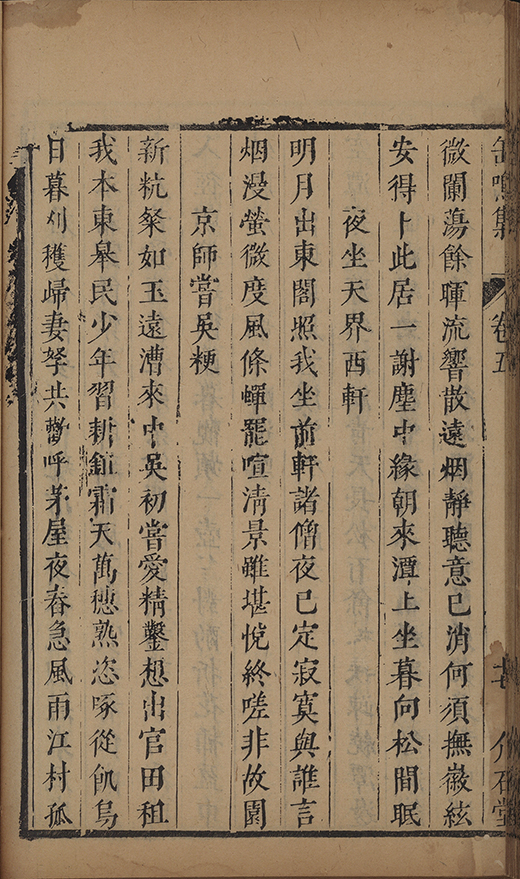 缶鳴集 卷五 介石堂
微闌蕩餘暉流響散遠烟靜聽意已消何須撫徽絃
安得卜此居一謝塵中緣朝來潭上坐暮向松間眠
夜坐天界西軒
明月出東閣照我坐前軒諸僧夜已定寂寞與誰言
烟漫螢微度風條蟬罷喧清景雖堪悅終嗟非故園
京師嘗吳粳
新秔粲如玉遠漕來中吳初嘗愛精鑿想出官田租
我本東皋民少年習耕鉏霜天萬穗熟恣啄從飢烏
日暮刈穫歸妻孥共歡呼茅屋夜舂急風雨江村孤